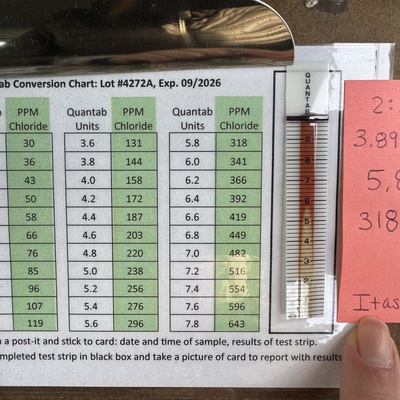 ab Conversion Chart: Lot #4272A, Exp. 09/2026
PPM Chloride Quantab Units PPM Chloride Quantab Units PPM Chloride
30 3.6 131 5.8 318
36 3.8 144 6.0 341
43 4.0 158 6.2 366
50 4.2 172 6.4 392
58 4.4 187 6.6 419
66 4.6 203 6.8 449
76 4.8 220 7.0 482
85 5.0 238 7.2 516
96 5.2 256 7.4 554
107 5.4 276 7.6 596
119 5.6 296 7.8 643
n a post-it and stick to card: date and time of sample, results of test strip.
mpleted test strip in black box and take a picture of card to report with results
QUANTAB
8
7
6
5
4
3
2
2:
3.89
5.8
318
Itas